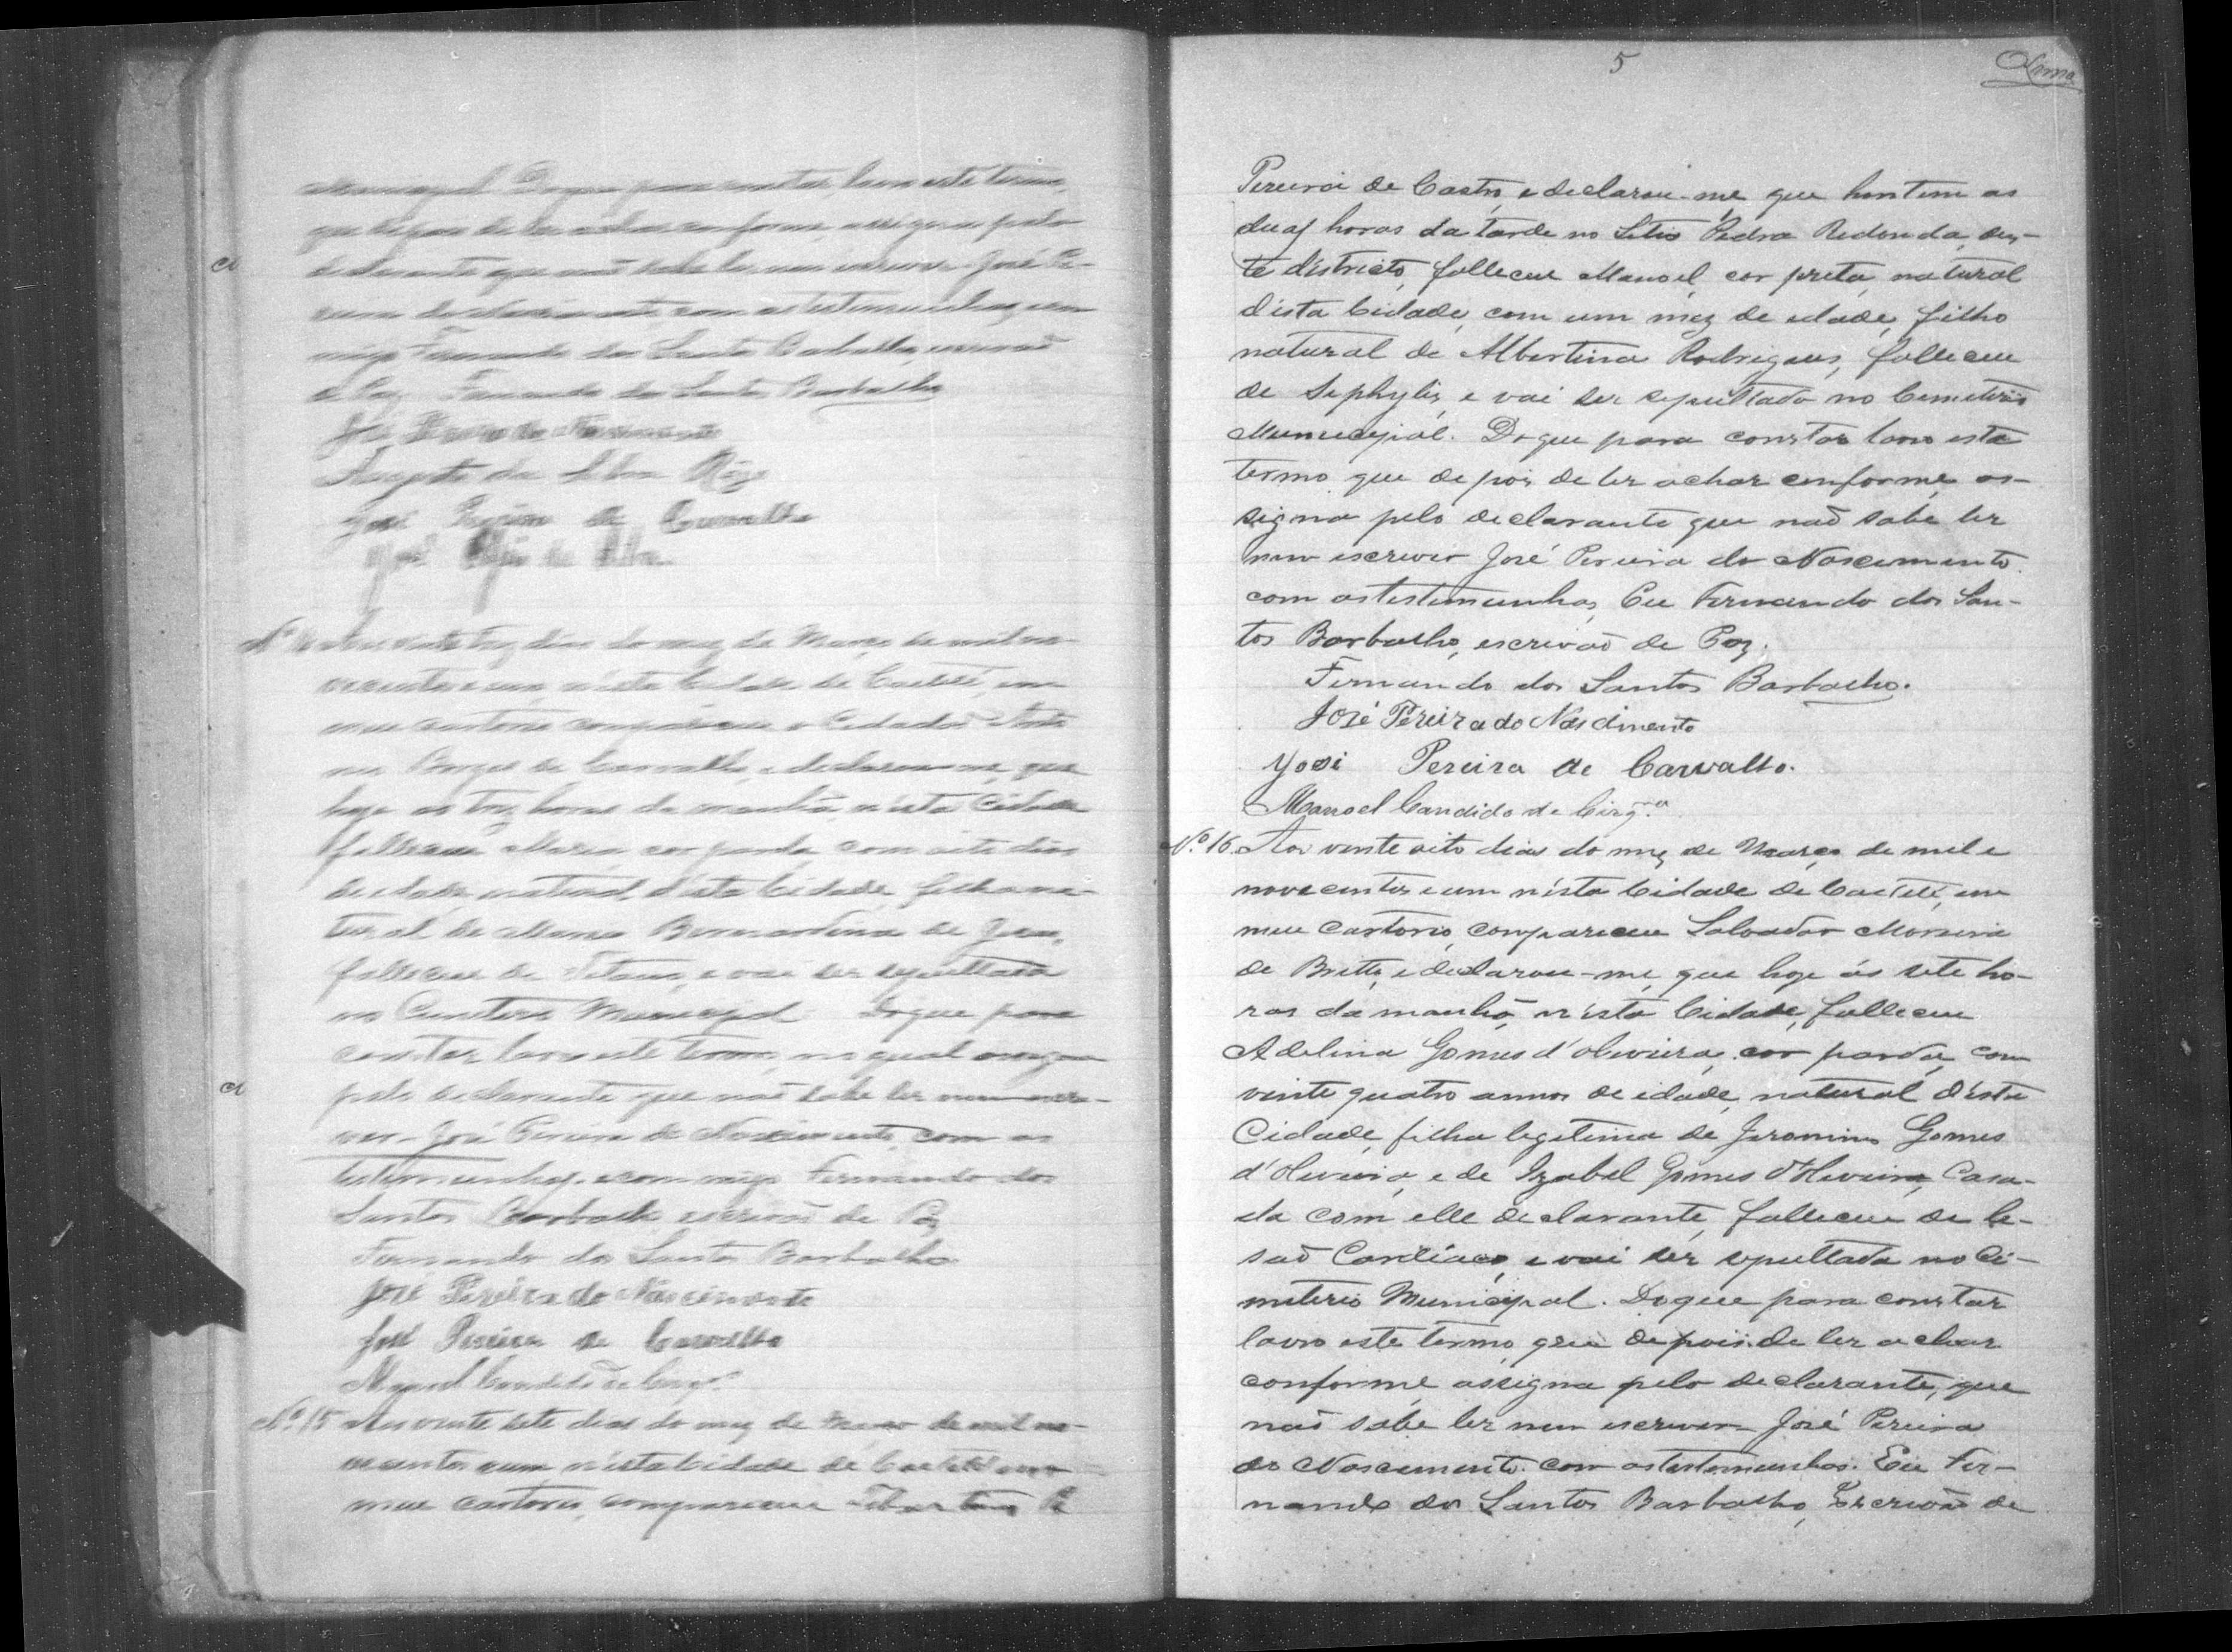 Municipal Do que para constar lavro este termo,
que depois de ler achar conforme, assigna pelo
declarante que não sabe ler nem escrever José Pe-
reira do Nascimento, com as testemunhas, com-
migo Fernando dos Santos Barbalho, escrivão
de Paz Fernando dos Santos Barbalho
José Pereira do Nascimento
Augusto da Silva
José Pereira de Carvalho
José da Silva
Nº Aos vinte trez dias do mez de Março de mil no-
vecentos e um, n'esta Cidade de Caeteté, em
meu cartorio compareceu o Cidadão Anto
nio Borges de Carvalho, e declarou-me, que
hoje as trez horas da manhã, n'esta Cidade
falleceu Maria, cor parda, com oito dias
de edade, natural d'esta Cidade, filha na-
tural de Maria Bernardina de Jesus,
falleceu de Tetano, e vai ser sepultada
no Cemiterio Municipal Do que para
constar, lavro este termo, no qual assigna
pelo declarante que não sabe ler nem escre-
ver - José Pereira do Nascimento, com as
testemunhas, e com migo Fernando dos
Santos Barbalho escrivão de Paz
Fernando dos Santos Barbalho
José Pereira do Nascimento
José Pereira de Carvalho
Manoel Candido de Cirqª
Nº 15 Aos vinte sete dias do mez de Março de mil no-
vecentos e um, n'esta Cidade de Caeteté em
meu cartorio, compareceu
5
Lima
Pereira de Castro, e declarou-me que hontem as
duas horas da tarde no Sitio Pedra Redonda, des-
te districto, falleceu Manoel, cor preta, natural
d'esta Cidade, com um mez de edade, filho
natural de Albertina Rodrigues, falleceu
de Syphylis, e vai ser sepultado no Cemiterio
Municipal. Do que para constar lavro este
termo que depois de ler achar conforme, as-
signa pelo declarante que não sabe ler
nem escrever José Pereira do Nascimento
com as testemunhas, Eu Fernando dos San-
tos Barbalho, escrivão de Paz.
Fernando dos Santos Barbalho.
José Pereira do Nascimento
José Pereira de Carvalho.
Manoel Candido de Cirqª
Nº 16 Aos vinte oito dias do mez de Março de mil e
novecentos e um n'esta Cidade de Caeteté, em
meu Cartorio, compareceu Salvador Moreira
de Britto, e declarou-me, que hoje ás sete ho-
ras da manhã, n'esta Cidade, falleceu
Adelina Gomes d'Oliveira, cor parda, com
vinte quatro annos de idade, natural d'esta
Cidade, filha legitima de Jeronimo Gomes
d'Oliveira, e de Izabel Gomes d'Oliveira, Casa-
da com elle declarante, falleceu de le-
são Cardiaca, e vai ser sepultada no Ce-
miterio Municipal. Do que para constar
lavro este termo, que depois de ler achar
conforme, assigna pelo declarante, que
não sabe ler nem escrever José Pereira
do Nascimento com as testemunhas. Eu Fer-
nando dos Santos Barbalho, Escrivão de